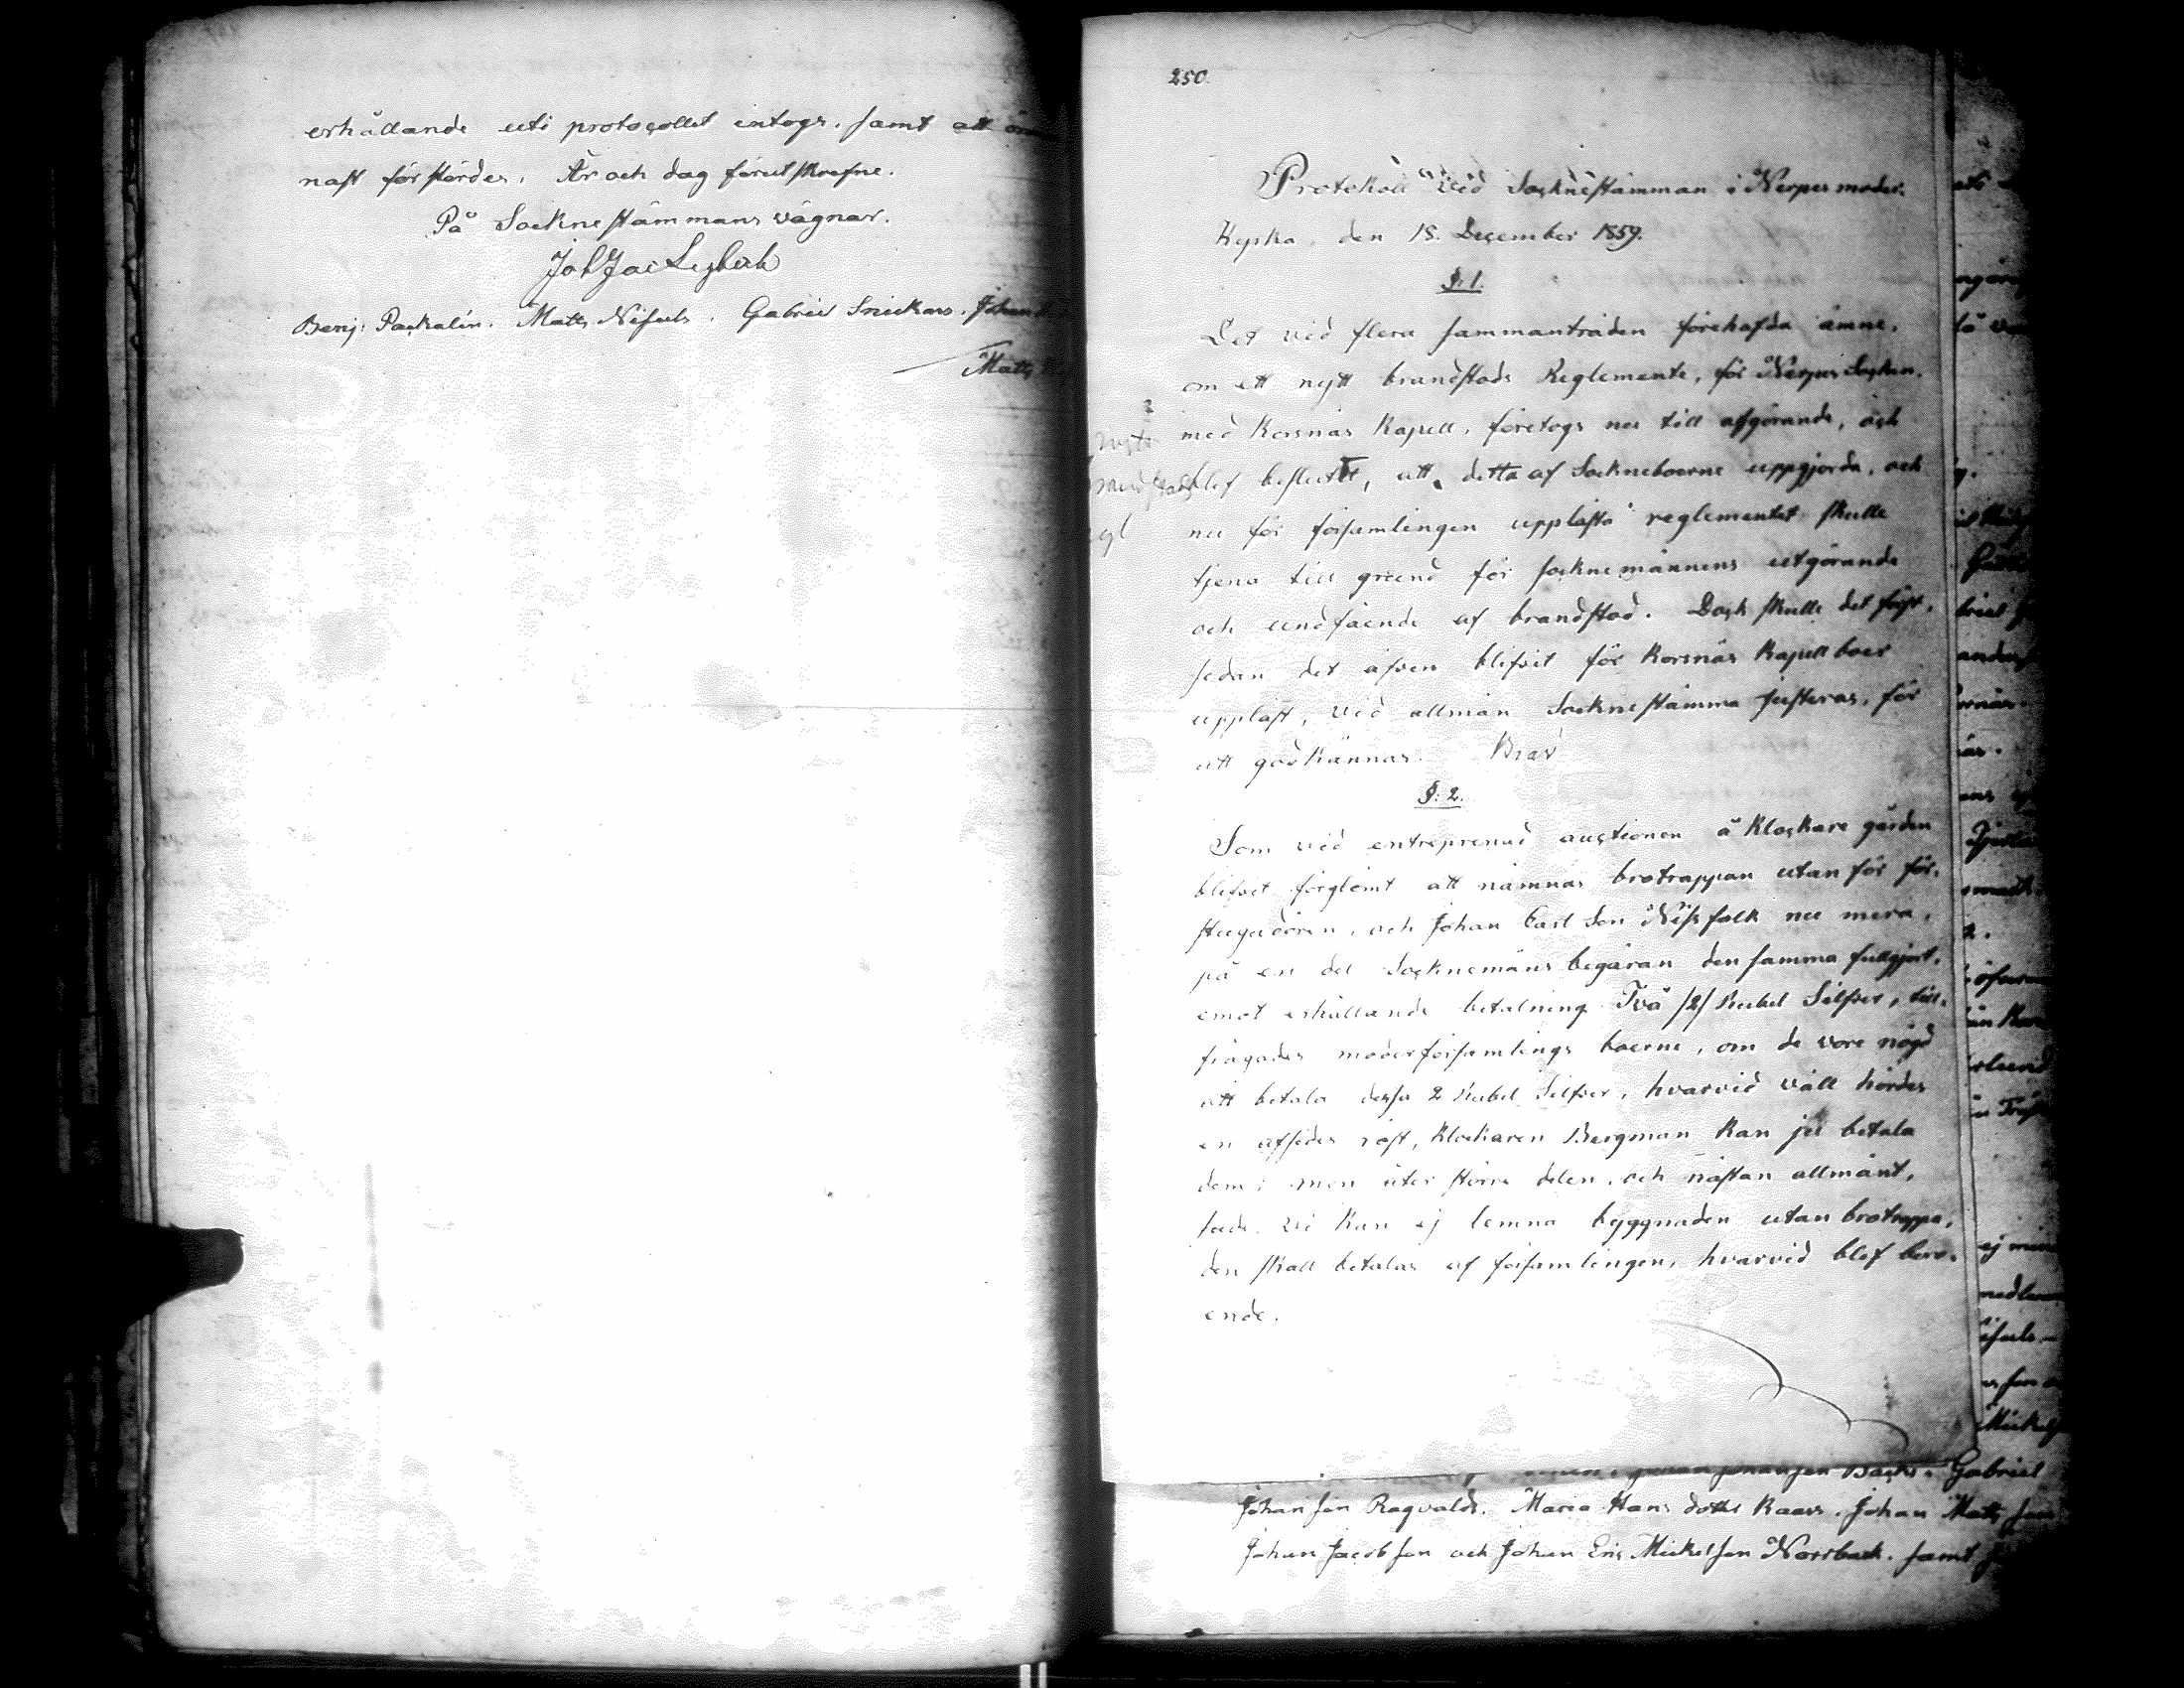 erhållande uti protocollet intogs, samt att
nast förstördes. År och dag förutskrefne.
På Socknestämmans vägnar.
Joh Jac Legback
Benj: Packalén. Matts Nisuls. Gabriel Snickars. Johan
Matts
250.
Protokoll vid Socknestämman i Nerpes moder-
kyrka, den 18. December 1859.
§: 1.
Det vid flera sammanträden förehafda ämne,
om ett nytt brandstods Reglemente, för Nerpes Socken,
med Korsnäs Kapell, företogs nu till afgörande, och
blef beslutit, att detta af Sockneboerne uppgjorda, och
nu för församlingen upplästa reglementet skulle
tjena till grund för socknemännens utgörande
och undfående af brandstod. Dock skulle det först,
sedan det äfven blifvit för Korsnäs Kapellboer
uppläst, vid allmän Socknestämma justeras, för
att godkännas.
§: 2.
Som vid entreprenad auctionen å Klockare gården
blifvit förglömt att nämnas brotrappan utanför för-
stugudören, och Johan Carl Son Nissfolk nu mera,
på en del Socknemäns begäran densamma fullgjort,
emot erhållande betalning Två /2/ Rubel Silfver, till-
frågades moderförsamlings boerne, om de vore nöjd
att betala dessa 2 Rubel Silfver, hvarvid väll hördes
en afsides röst, Klockaren Bergman kan ju betala
dem; men åter större delen, och nästan allmänt,
sade, vi kan ej lemna byggnaden utan brotrappa,
den skall betalas af församlingen, hvarvid blef bero-
ende.
Gabriel
Johan son Ragvalds. Maria Hans dotter Kaars. Johan Matts son
Johan Jacobson och Johan Eric Mickelson Norrback. samt